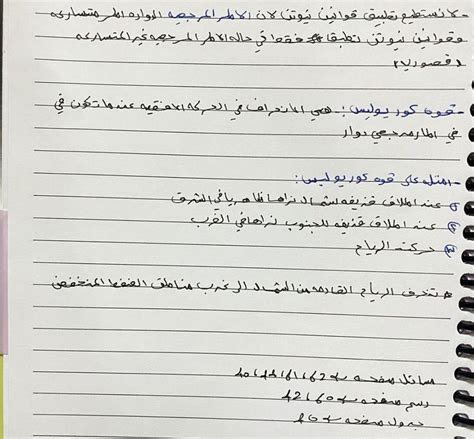 لا نستطيع تطبيق قوانين نيوتن لان الاطر المرجعيه الدواره اطر متسارعه
وقوانين نيوتن تطبق فقط في حاله الاطر المرجعيه غير المتسارعه
- قوه كوريوليس: هي الانحراف في الحركه الافقيه عندما تكون في
اطار مرجعي دوار
- امثله على قوه كوريوليس:
① عند اطلاق قذيفه شمالا نراها في الشرق
② عند اطلاق قذيفه للجنوب نراها في الغرب
③ حركة الرياح
* تنحرف الرياح القادمه من الشمال الى غرب مناطق الضغط المنخفض
مسائل صفحه
رسم صفحه
جدول صفحه